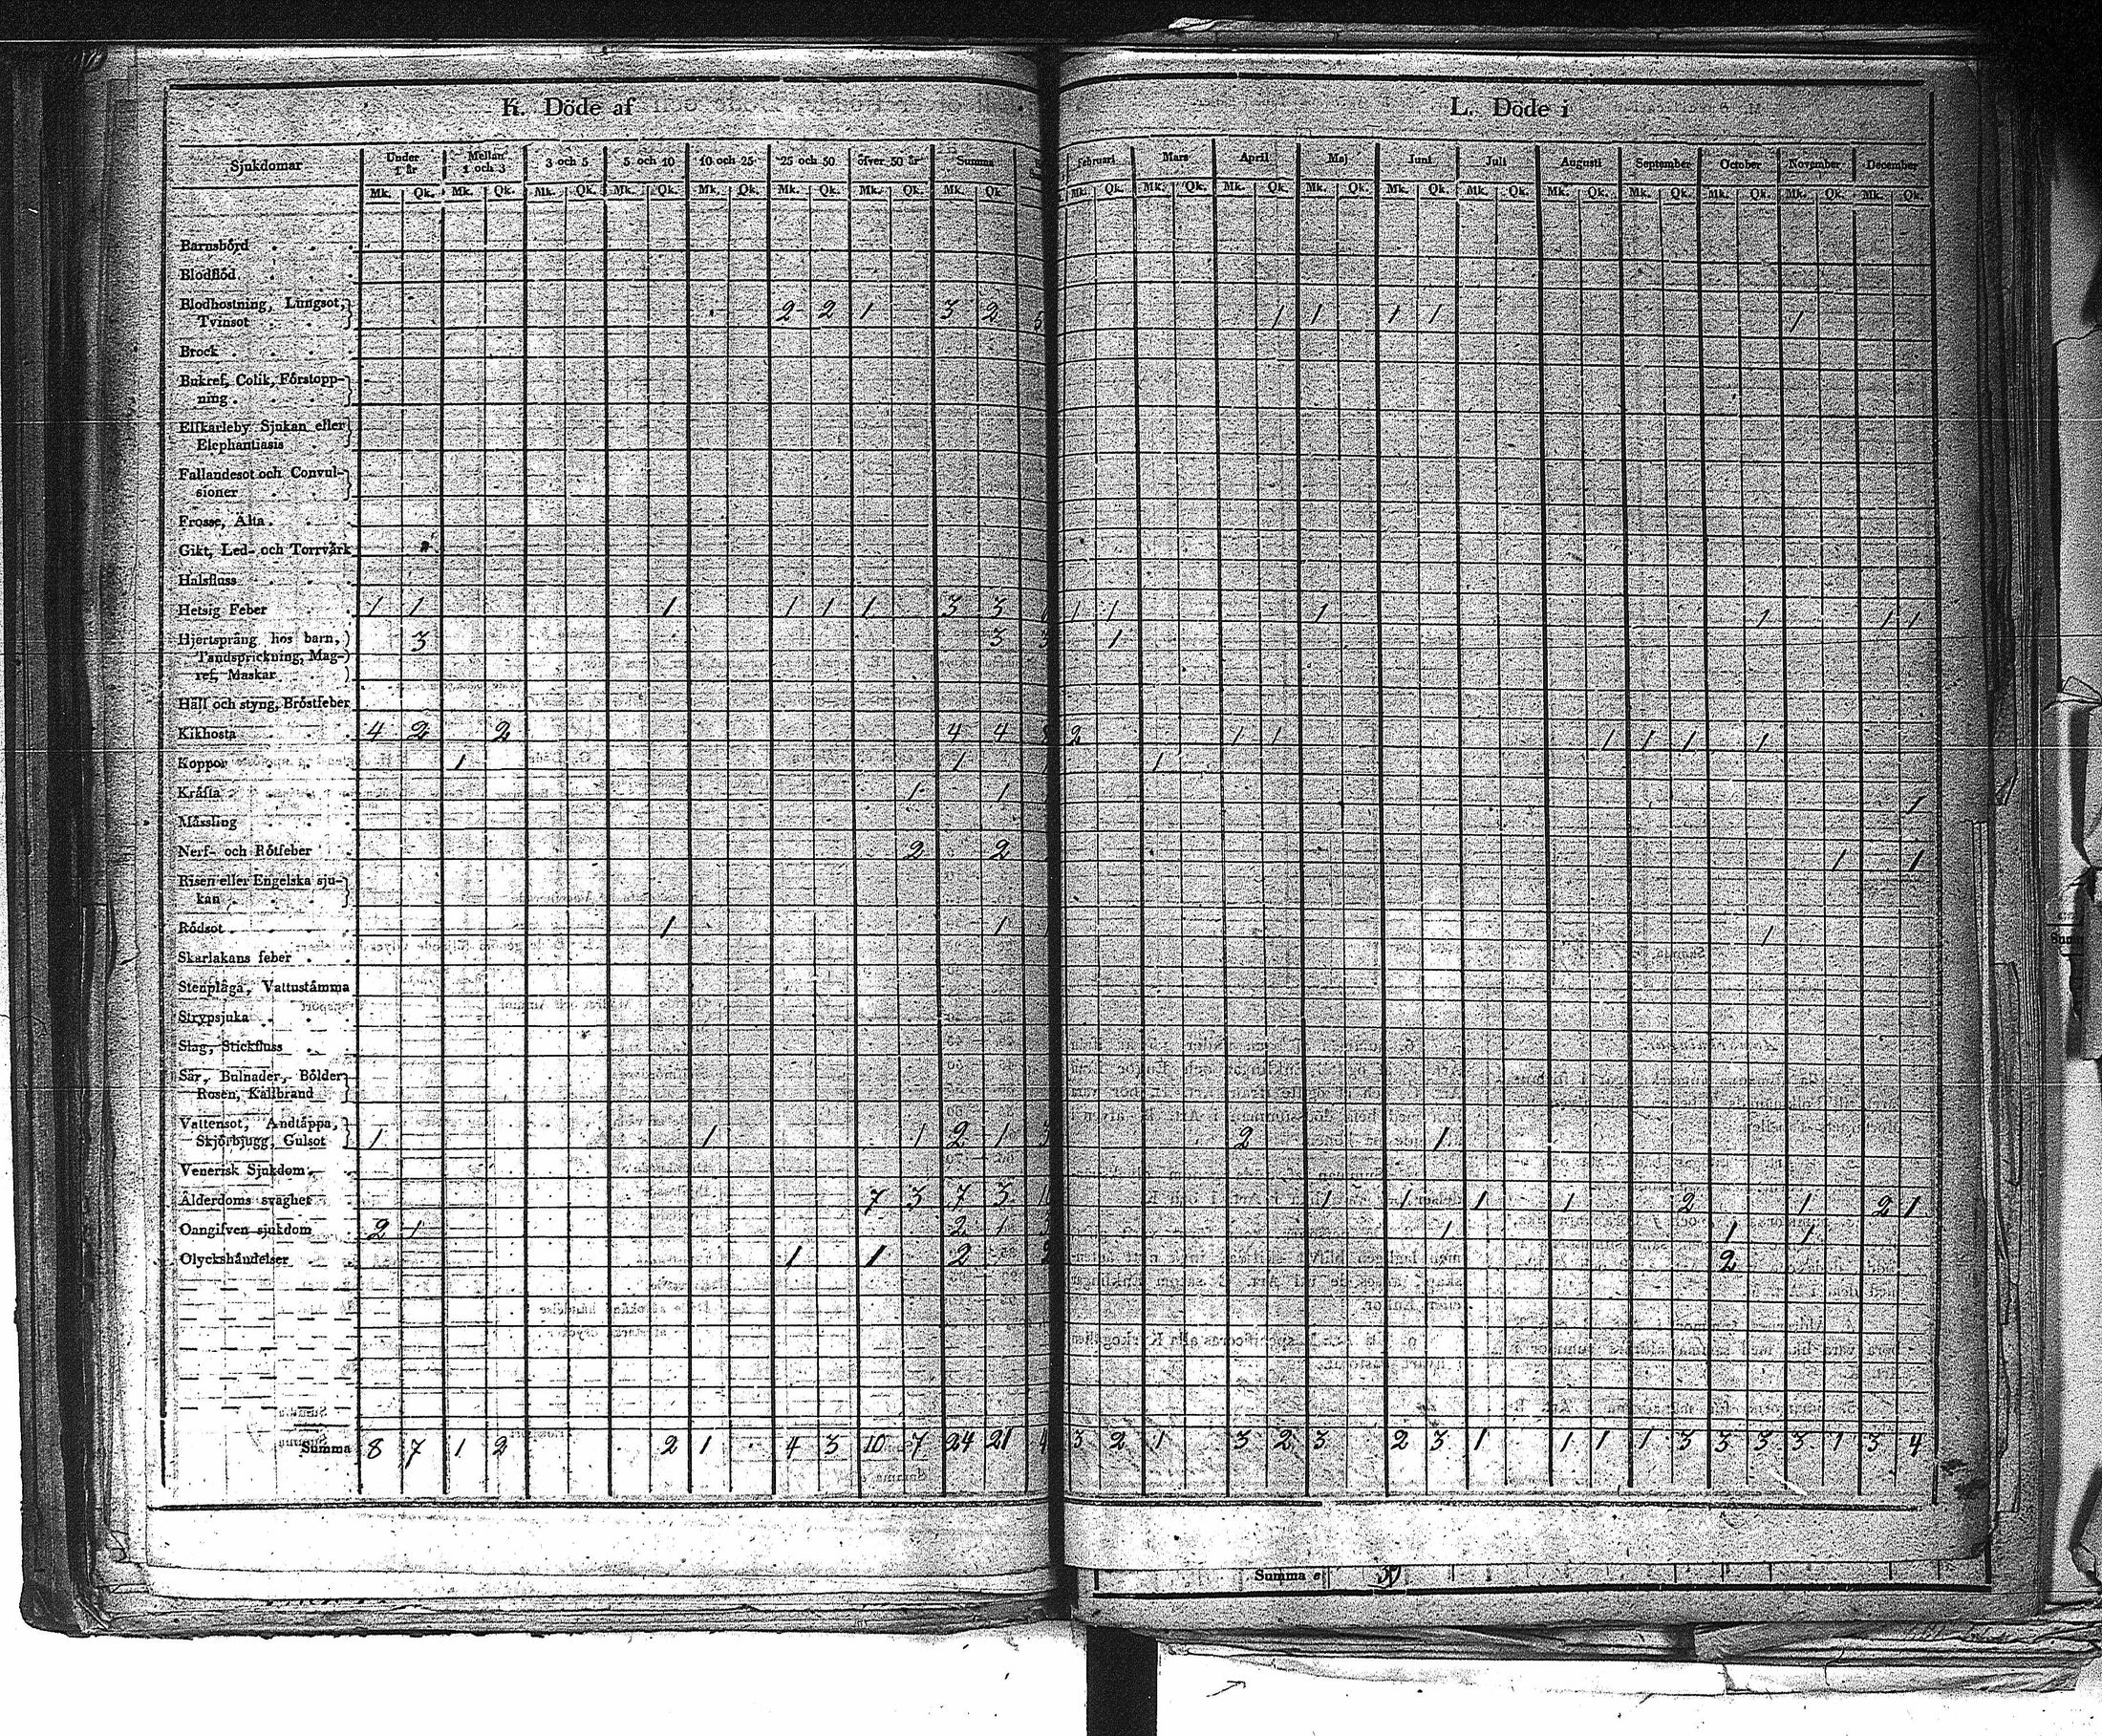 K. Döde af
L. Döde i
Sjukdomar Under 1 år Mellan 1 och 3 3 och 5 5 och 10 10 och 25 25 och 50 öfver 50 år Summa Februari Mars April Maj Juni Juli Augusti September October November December
Mk. Qk. Mk. Qk. Mk. Qk. Mk. Qk. Mk. Qk. Mk. Qk. Mk. Qk. Mk. Qk. Mk. Qk. Mk. Qk. Mk. Qk. Mk. Qk. Mk. Qk. Mk. Qk. Mk. Qk. Mk. Qk. Mk. Qk. Mk. Qk. Mk. Qk.
Barnsbörd
Blodflöd
Blodhostning, Lungsot,
Tvinsot 2 2 1 3 2 5 1 1 1 1 1
Brock
Bukref, Colik, Förstopp-
ning
Elfkarleby Sjukan eller
Elephantiasis
Fallandesot och Convul-
sioner
Frosse, Älta
Gikt, Led- och Torrvärk
Halsfluss
Hetsig Feber 1 1 1 1 1 1 3 3 1 1 1 1 1 1
Hjertsprång hos barn, 3 3 3 1
Tandsprickning, Mag-
ref, Maskar
Håll och styng, Bröstfeber
Kikhosta 4 2 2 4 4 8 2 1 1 1 1 1 1
Koppor 1 1 1 1
Kräfta 1 1 1
Mässling
Nerf- och Rötfeber 2 2 1 1
Risen eller Engelska sju-
kan
Rödsot 1 1 1 1
Skarlakans feber
Stenplåga, Vattustämma
Strypsjuka
Slag, Stickfluss
Sår, Bulnader, Bölder
Rosen, Kallbrand
Vattensot, Andtäppa,
Skjörbjugg, Gulsot 1 1 1 2 1 3 2 1
Venerisk Sjukdom
Ålderdoms svaghet 7 3 7 3 1 1 1 1 2 1 2 1
Oangifven sjukdom 2 1 2 1 3 1 1 1
Olyckshändelser 1 1 2 2 2
Summa 8 7 1 2 2 1 4 3 10 7 24 21 4 3 2 1 3 2 3 2 3 1 1 1 1 3 3 3 3 1 3 4
Summa